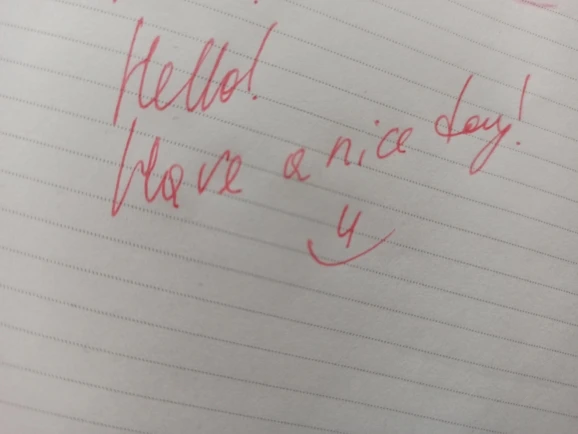 Hello!
Have a nice day!